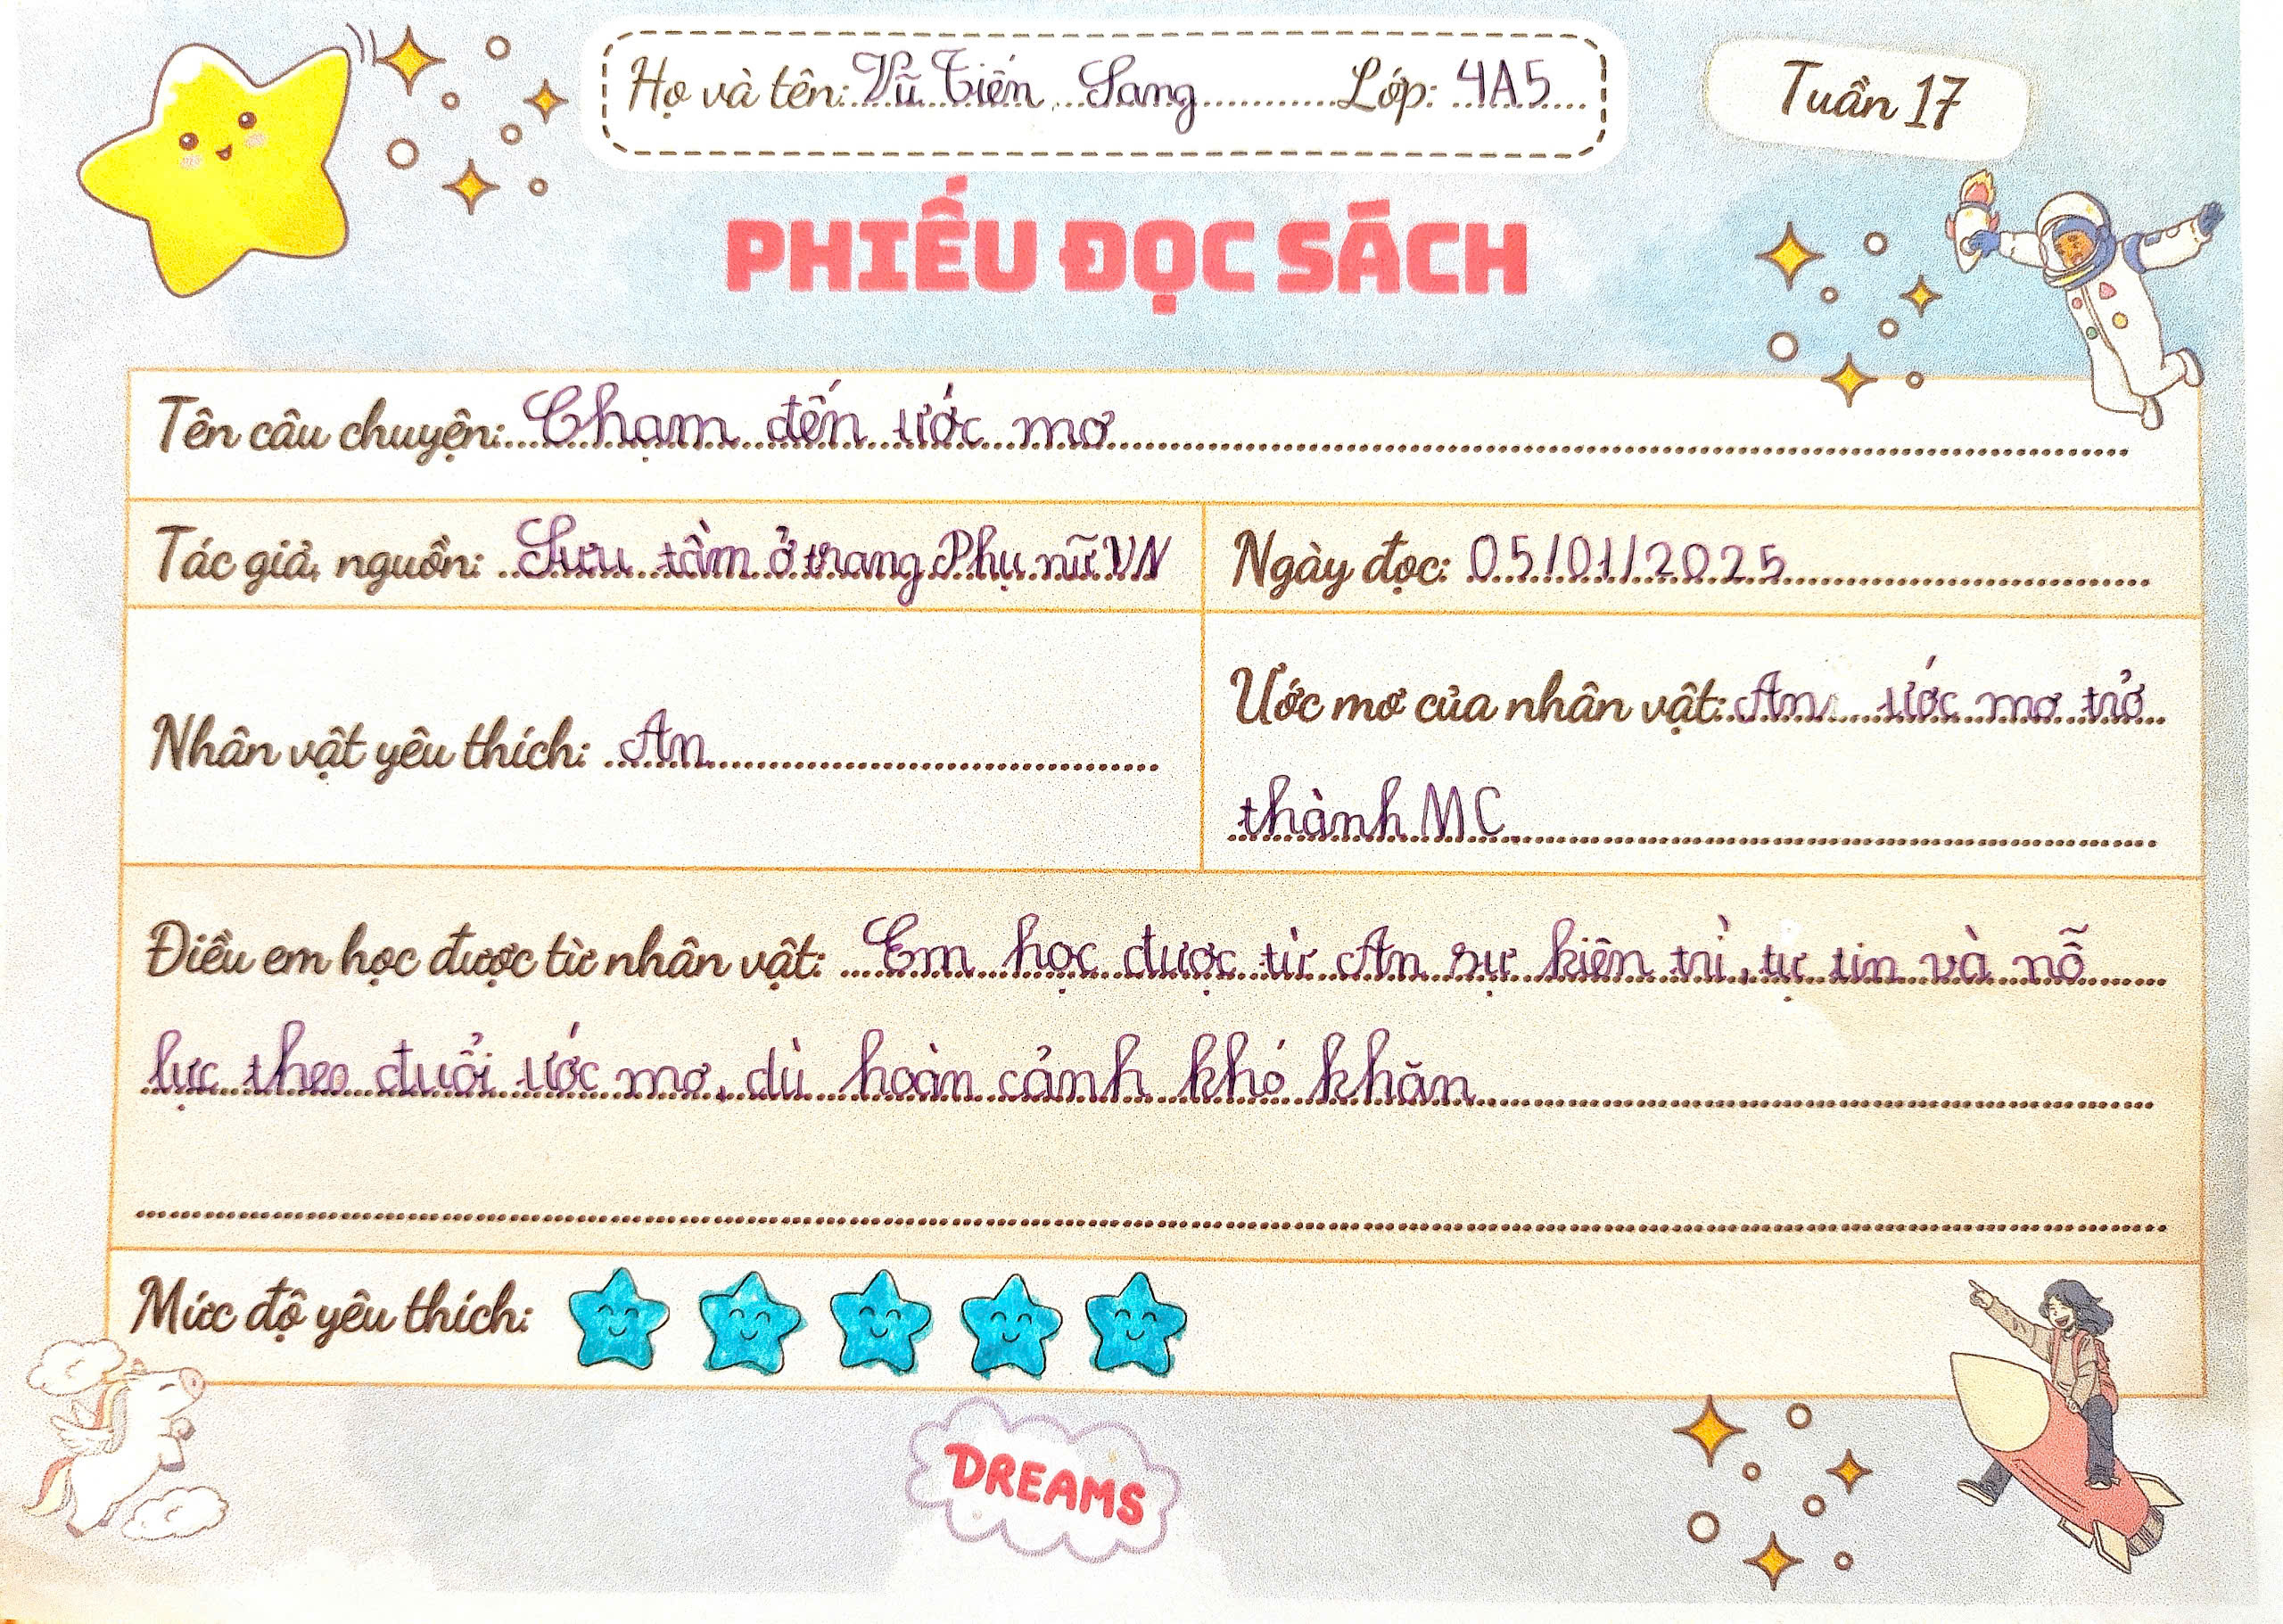 Họ và tên: Vũ Tiến Sang Lớp: 4A5
Tuần 17
PHIẾU ĐỌC SÁCH
Tên câu chuyện: Chạm đến ước mơ
Tác giả, nguồn: Sưu tầm ở trang Phụ nữ VN
Ngày đọc: 05/01/2025
Nhân vật yêu thích: An
Ước mơ của nhân vật: An ước mơ trở
thành MC
Điều em học được từ nhân vật: Em học được từ An sự kiên trì, tự tin và nỗ
lực theo đuổi ước mơ, dù hoàn cảnh khó khăn
Mức độ yêu thích:
DREAMS